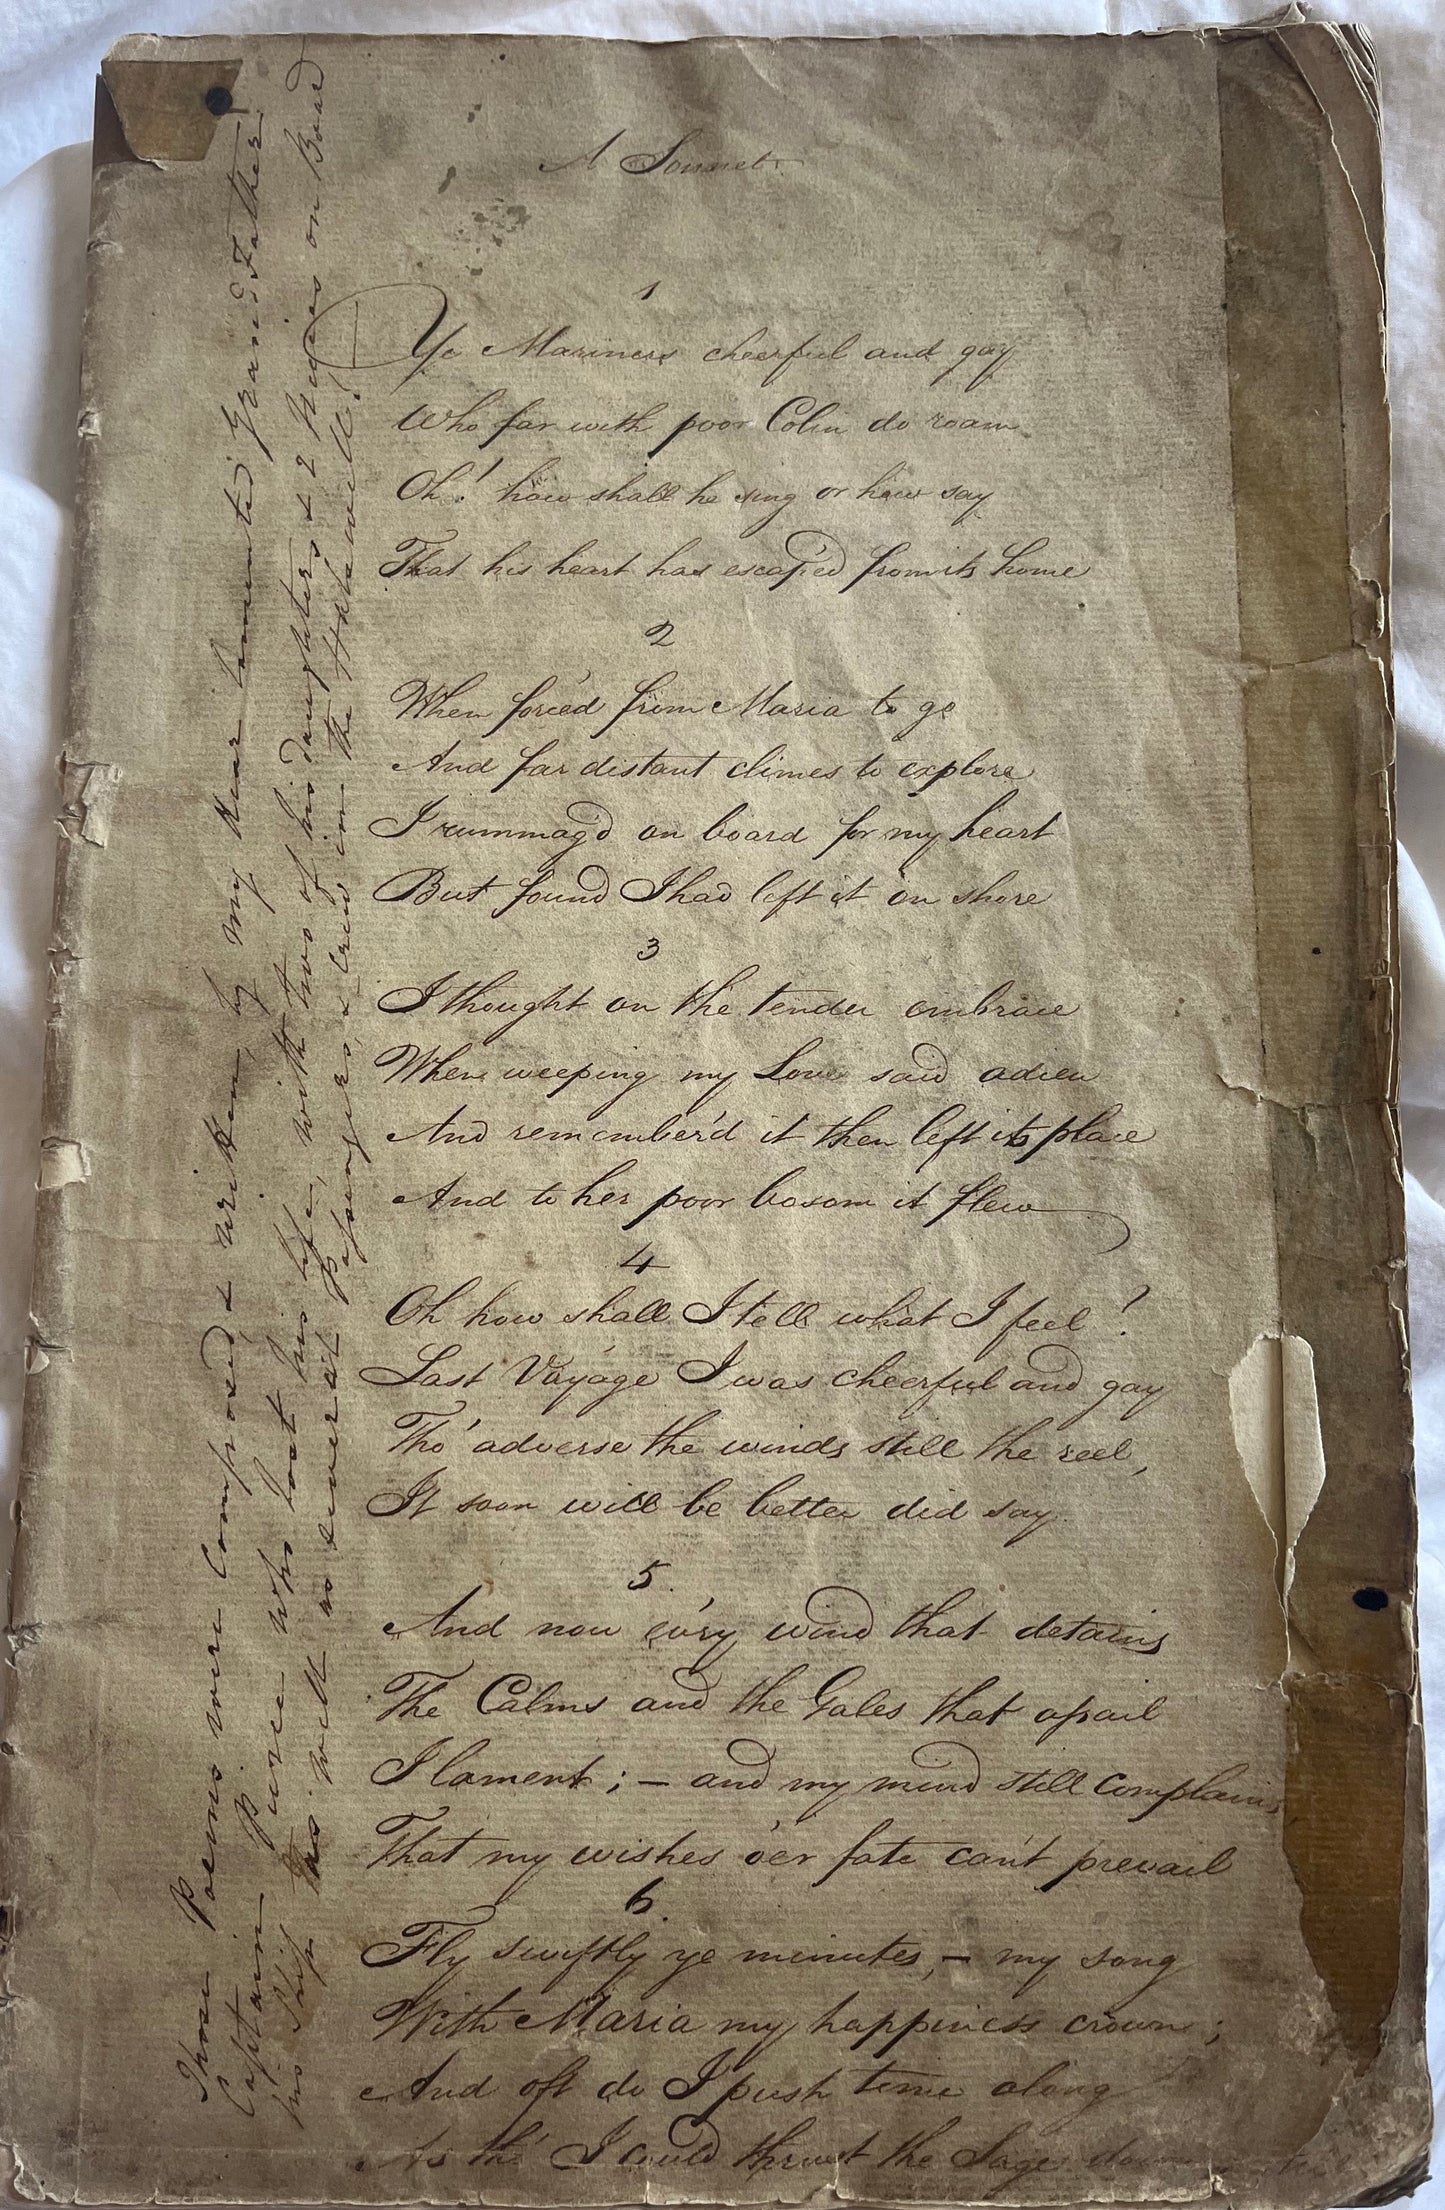 A Sonnet
1
Ye Mariners cheerful and gay
Who far with poor Colin do roam
Oh! how shall he sing or how say
That his heart has escap'd from its home
2
When forc'd from Maria to go
And far distant climes to explore
I rummag'd on board for my heart
But found I had left it on shore
3
I thought on the tender embrace
When weeping my Love said adieu
And remember'd it then left its place
And to her poor bosom it flew
4
Oh how shall I tell what I feel?
Last Voyage I was cheerful and gay
Tho' adverse the winds still the reel,
It soon will be better did say
5.
And now ev'ry wind that detains
The Calms and the Gales that assail
I lament; – and my mind still complains,
That my wishes o'er fate can't prevail
6.
Fly swiftly ye minutes, – my song
With Maria my happiness crown;
And oft do I push time along
As tho' I could thrust the Sage down
These Poems were Composed & written, by my dear lamented Grand Father
Captain Pierce who lost his life, with two of his daughters & 2 Nieces on Board
his Ship as well as several Passengers, & Crew in the Halsewell!